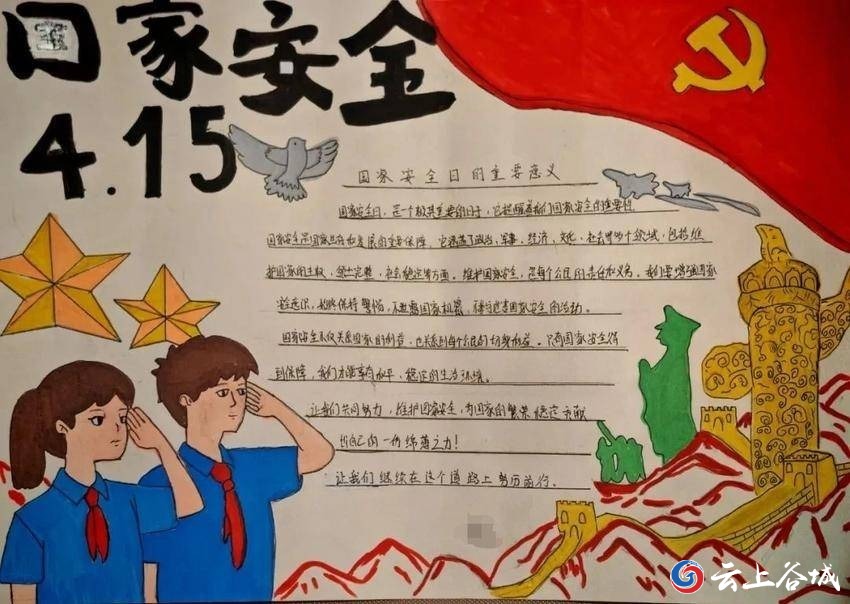 国家安全
4.15
国家安全日的重要意义
国家安全日，是一个极其重要的日子，它提醒着我们国家安全的重要性
国家安全是国家生存和发展的重要保障，它涵盖了政治、军事、经济、文化、社会等多个领域，包括维
护国家的主权、领土完整，社会稳定等方面。维护国家安全，是每个公民的责任和义务。我们要增强国家
安全意识，始终保持警惕，不泄露国家机密，不参与危害国家安全的活动。
国家安全不仅关系国家的利益，也关系到每个公民的切身利益。只有国家安全得
到保障，我们才能享有和平、稳定的生活环境。
让我们共同努力，维护国家安全，为国家的繁荣稳定贡献
出自己的一份绵薄之力！
让我们继续在这个道路上努力前行。
云上谷城